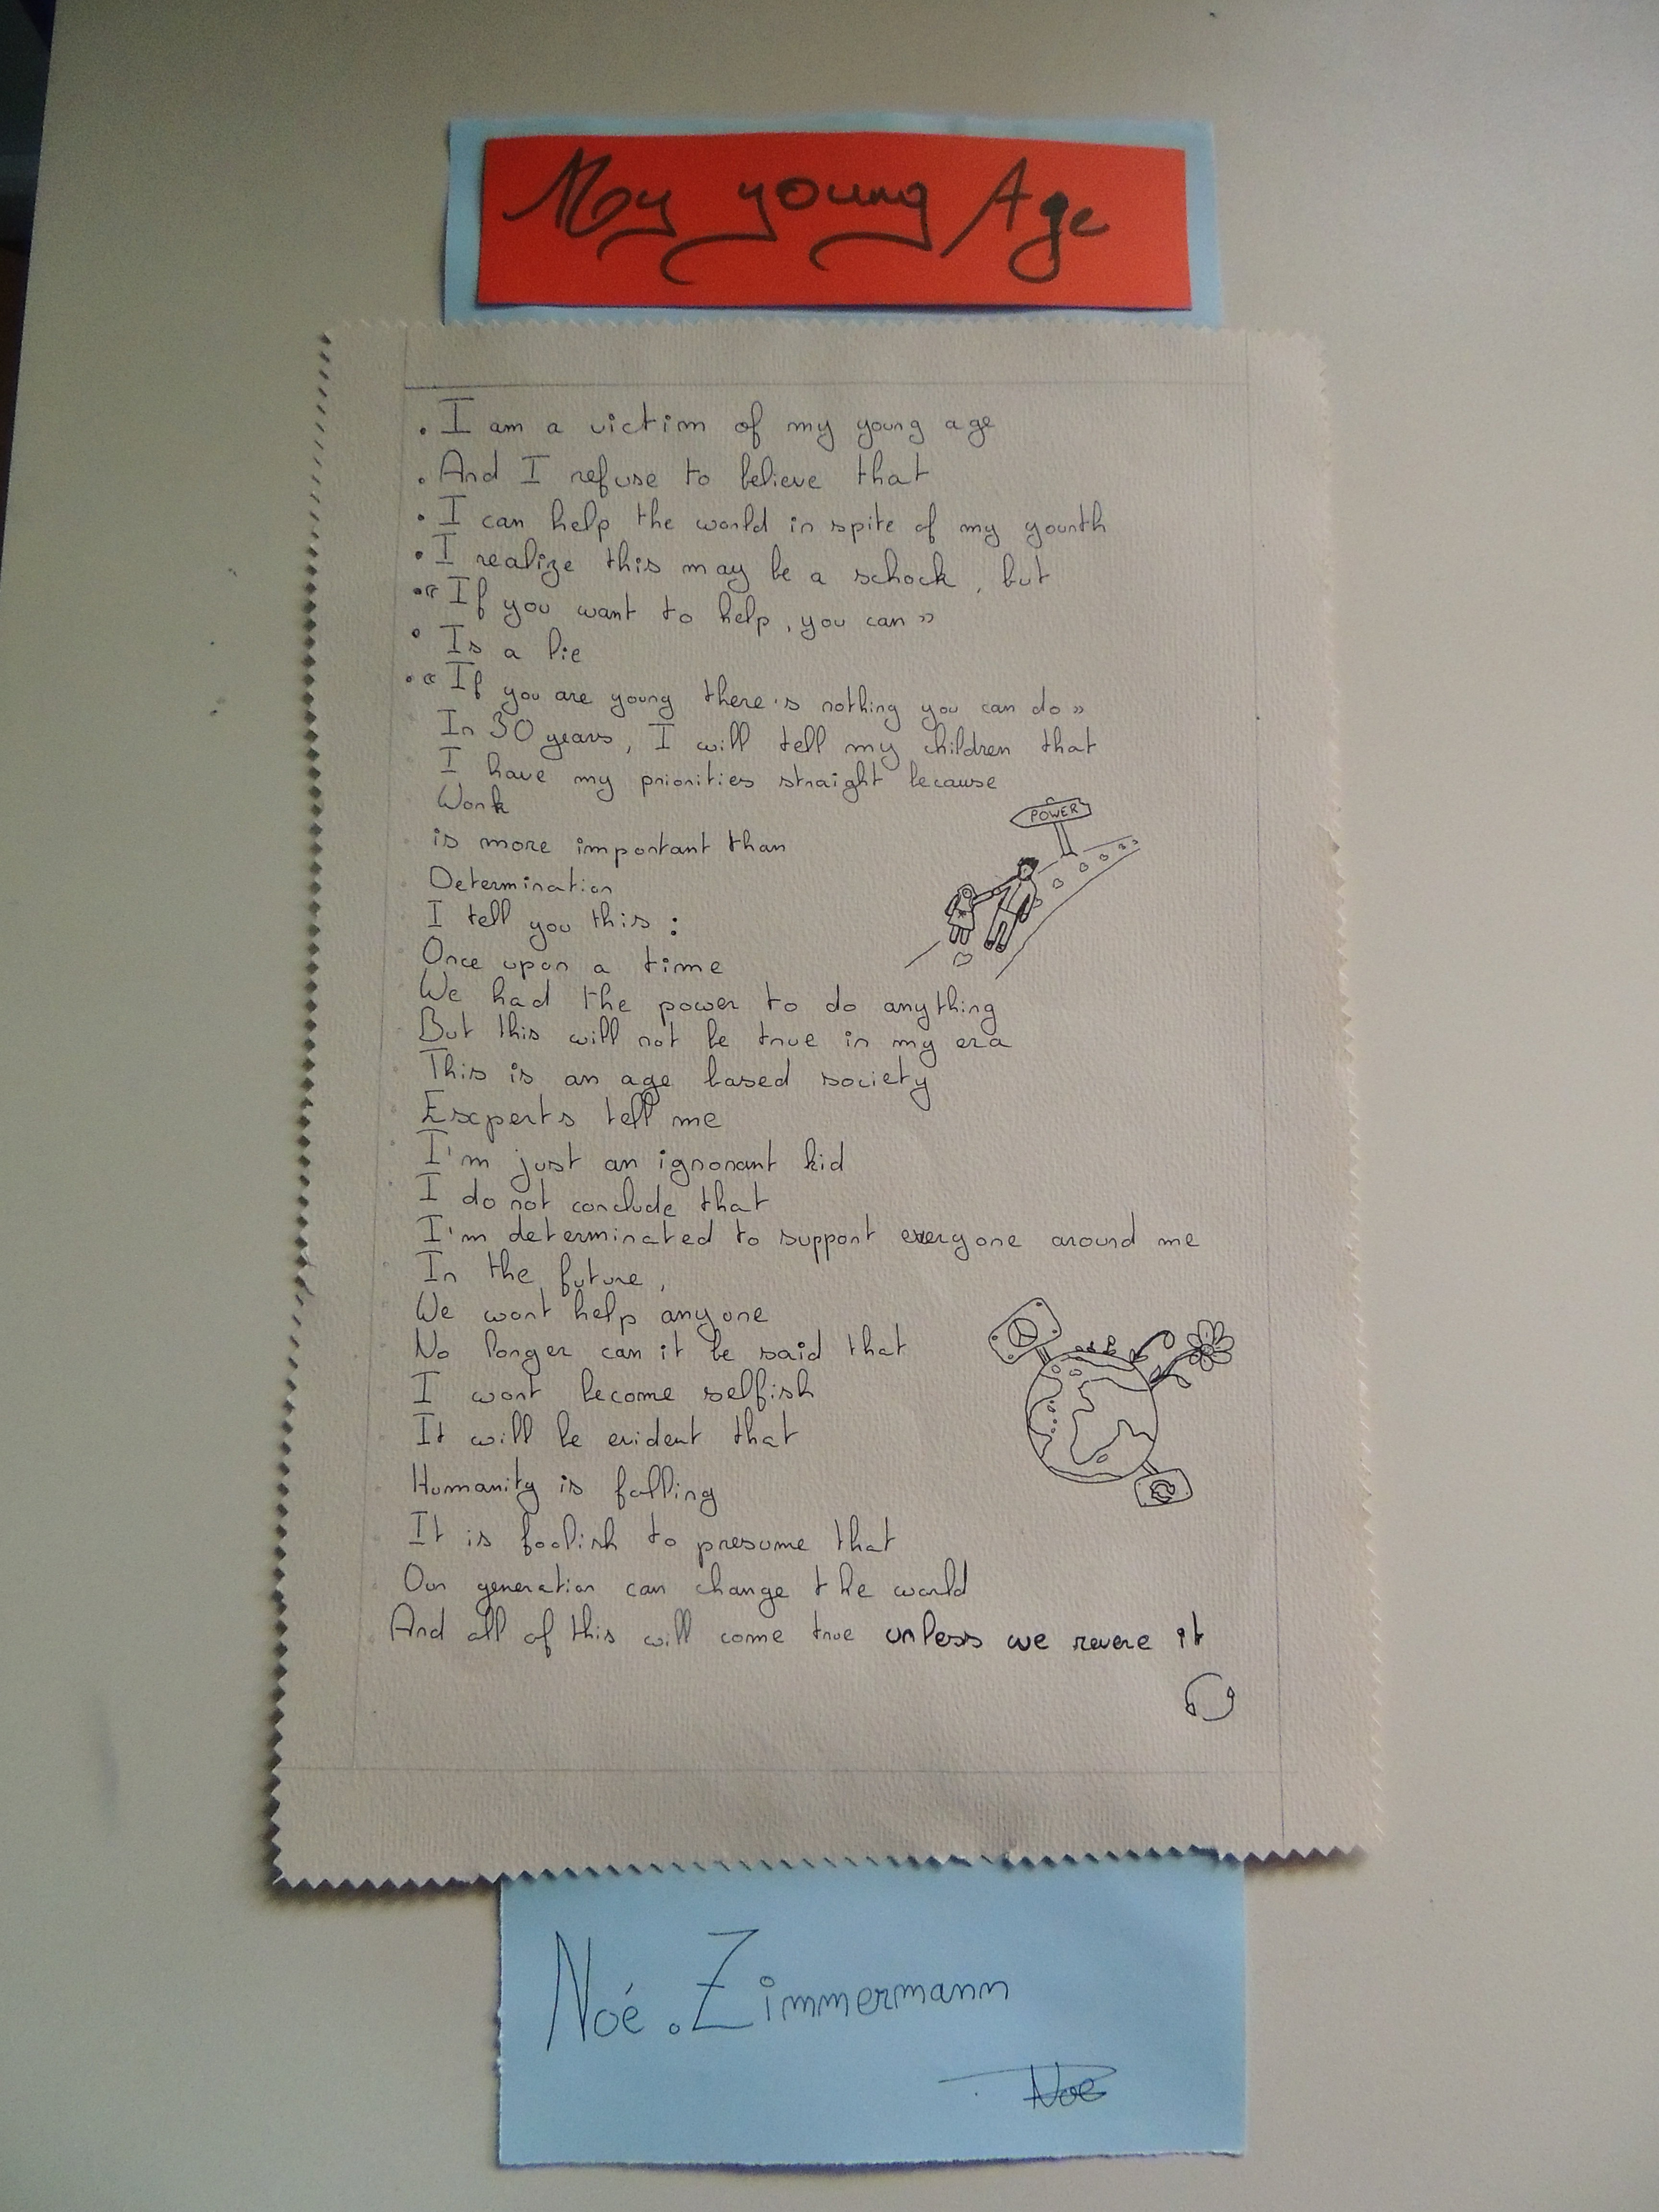 My young Age
. I am a victim of my young age
. And I refuse to believe that
. I can help the world in spite of my yourth
. I realize this may be a schock, but
. « If you want to help, you can »
. Is a lie
. « If you are young there's nothing you can do »
In 30 years, I will tell my children that
I have my priorities straight because
Work
is more important than
Determination
POWER
I tell you this :
Once upon a time
We had the power to do anything
But this will not be true in my era
This is an age based society
Experts tell me
I'm just an ignorant kid
I do not conclude that
I'm determinated to support everyone around me
In the future,
We wont help anyone
No longer can it be said that
I wont become selfish
It will be evident that
Humanity is falling
It is foolish to presume that
Our generation can change the world
And all of this will come true unless we revere it
Noé.Zimmermann
Noé